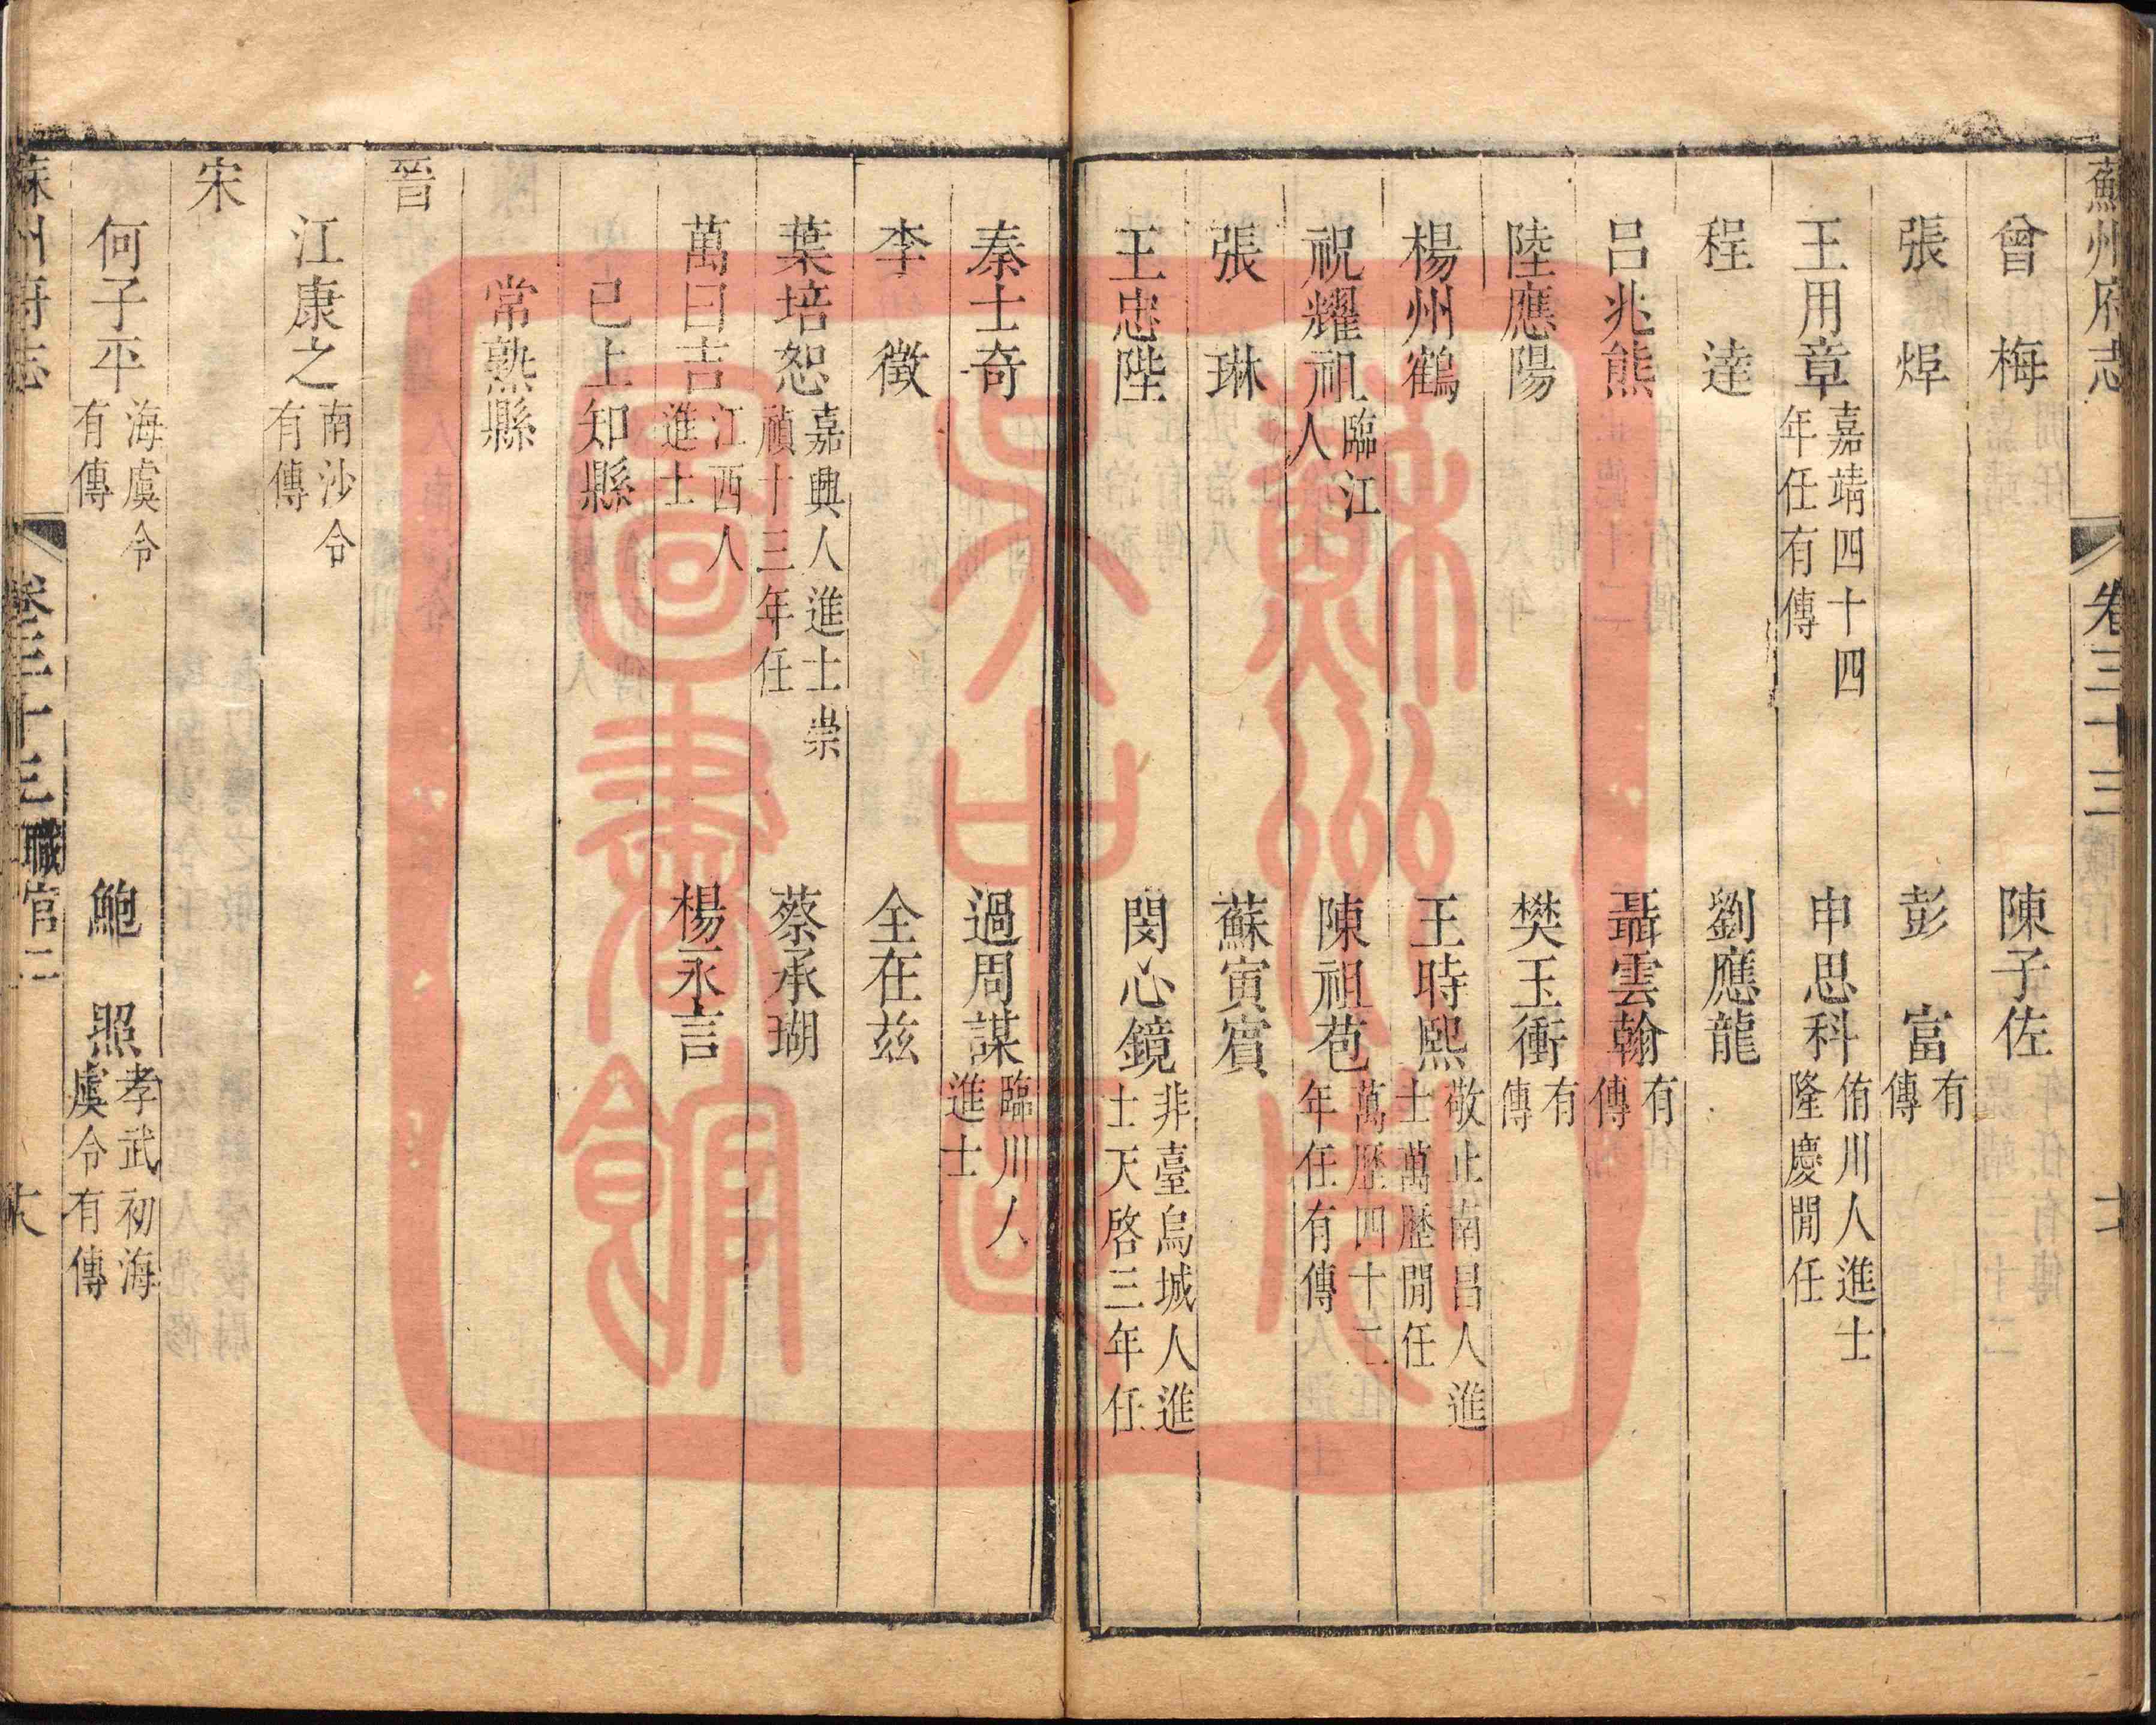 蘇州府志 卷三十三
曾梅 陳子佐
張焊 彭富 有傳
王用章 嘉靖四十四年任有傳 申思科 侑川人進士隆慶閒任
程達 劉應龍
呂兆熊 聶雲翰 有傳
陸應陽 樊玉衡 有傳
楊州鶴 王時熙 敬止南昌人進士萬歷閒任
祝耀祖 臨江人 陳祖苞 萬歷四十二年任有傳
張琳 蘇寅賔
王忠陛 閔心鏡 非臺烏城人進士天啓三年任
秦士奇 過周謀 臨川人進士
李徵 全在茲
葉培恕 嘉興人進士崇禎十三年任 蔡承瑚
萬曰吉 江西人進士 楊永言
已上知縣
常熟縣
晉
江康之 南沙令有傳
宋
何子平 海虞令有傳 鮑照 孝武初海虞令有傳
蘇州府志 卷三十三 職官二
蘇州大史連圖書館